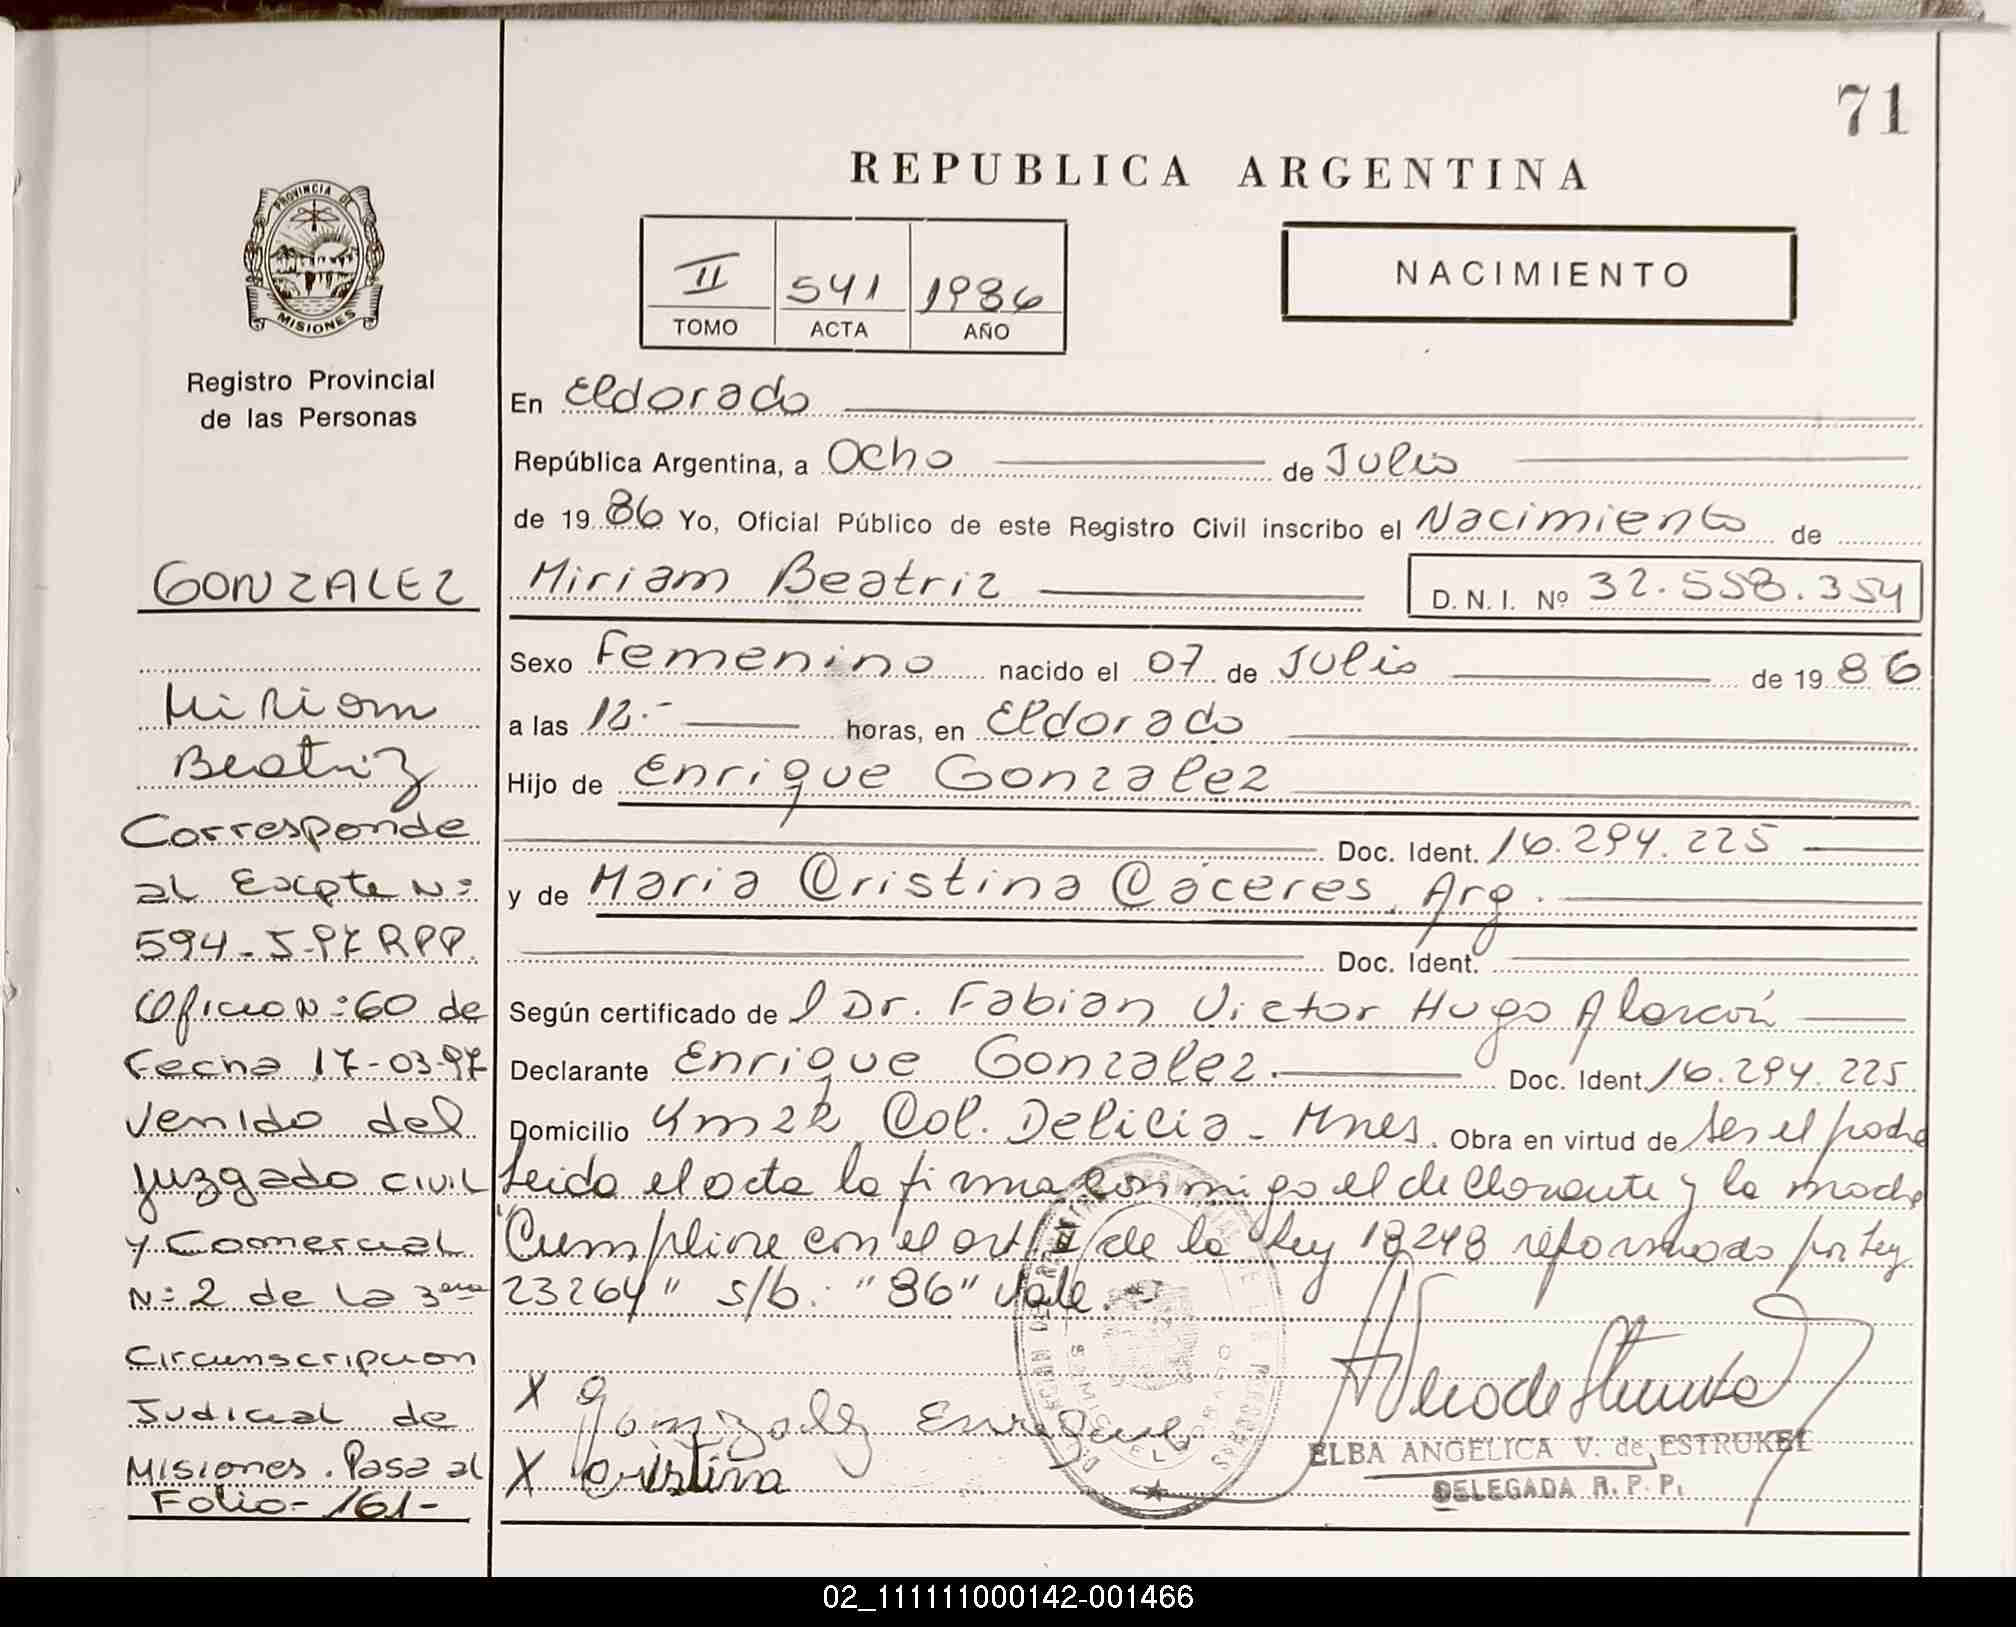 71
REPUBLICA ARGENTINA
PROVINCIA DE
MISIONES
II 541 1986
TOMO ACTA AÑO
NACIMIENTO
Registro Provincial
de las Personas
En Eldorado
República Argentina, a Ocho de Julio
de 1986 Yo, Oficial Público de este Registro Civil inscribo el Nacimiento de
Miriam Beatriz D.N.I. Nº 32.558.354
Sexo Femenino nacido el 07 de Julio de 1986
a las 12.- horas, en Eldorado
Hijo de Enrique Gonzalez
Doc. Ident. 16.294.225
y de Maria Cristina Cáceres, Arg.
Doc. Ident.
Según certificado de l Dr. Fabian Victor Hugo Alarcón
Declarante Enrique Gonzalez.- Doc. Ident. 16.294.225
Domicilio Km 22 Col. Delicia - Mnes. Obra en virtud de ser el padre
Leida el acta la firma conmigo el declarante y la madre
"Cumplire con el art de la Ley 18248 reformado por Ley
23264" s/b: "86" Vale.
X Gonzalez Enrique
X Cristina
ELBA ANGELICA V. de ESTRUKEL
DELEGADA R.P.P.
GONZALEZ
Miriam
Beatriz
Corresponde
al Excpte Nº
594-S-97 RPP.
Oficio Nº 60 de
Fecha 17-03-97
venido del
Juzgado Civil
y Comercial
Nº 2 de la 3era
Circunscripcion
Judicial de
Misiones. Pasa al
Folio- 161-
02_111111000142-001466